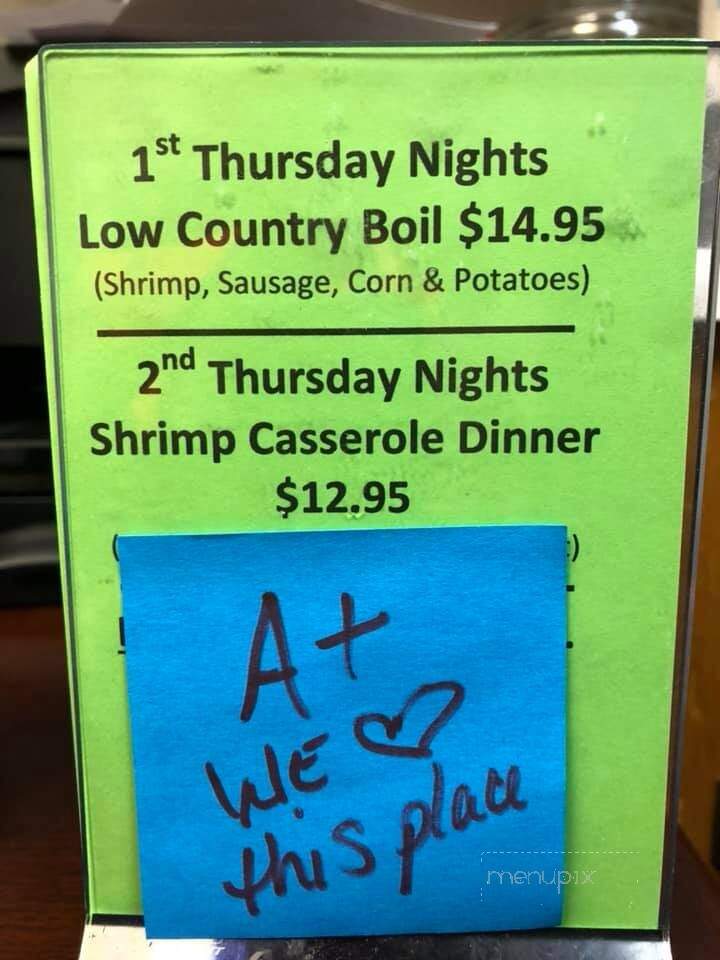 1st Thursday Nights
Low Country Boil $14.95
(Shrimp, Sausage, Corn & Potatoes)
2nd Thursday Nights
Shrimp Casserole Dinner
$12.95
A+
WE ♡
this place
menupix